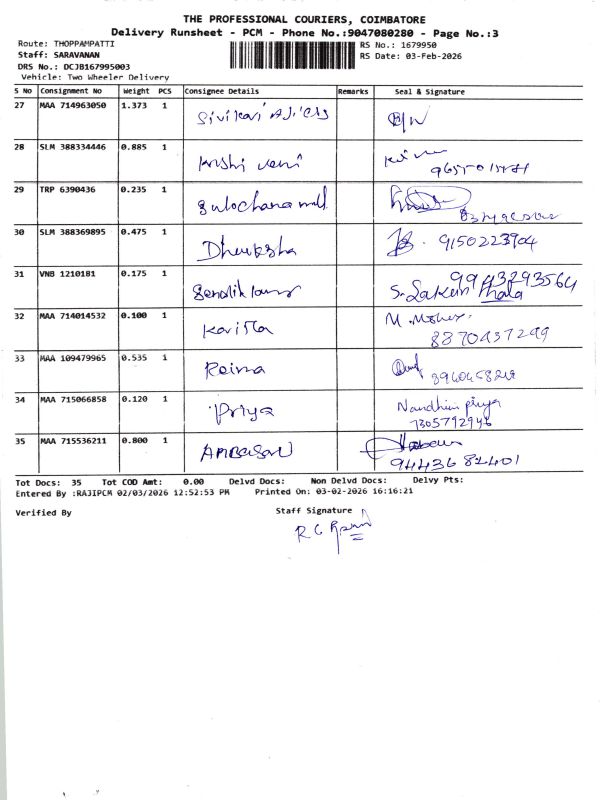 THE PROFESSIONAL COURIERS, COIMBATORE
Delivery Runsheet - PCM - Phone No.:9047080280 - Page No.:3
Route: THOPPAMPATTI
RS No.: 1679950
Staff: SARAVANAN
RS Date: 03-Feb-2026
DRS No.: DCJB167995003
Vehicle: Two Wheeler Delivery
S No Consignment No Weight PCS Consignee Details Remarks Seal & Signature
27 MAA 714963050 1.373 1
28 SLM 388334446 0.885 1 Krishi veni
29 TRP 6390436 0.235 1 Sulochana
30 SLM 388369895 0.475 1 Dheeksha 9150223904
31 VNB 1210181 0.175 1 9943293564
32 MAA 714014532 0.100 1 Kavitta
8870437299
33 MAA 109479965 0.535 1 Reima
34 MAA 715066858 0.120 1 Priya Nandhini priya
35 MAA 715536211 0.800 1 AMBASAN
9443682401
Tot Docs: 35 Tot COD Amt: 0.00 Delvd Docs: Non Delvd Docs: Delvy Pts:
Entered By :RAJIPCM 02/03/2026 12:52:53 PM Printed On: 03-02-2026 16:16:21
Verified By Staff Signature